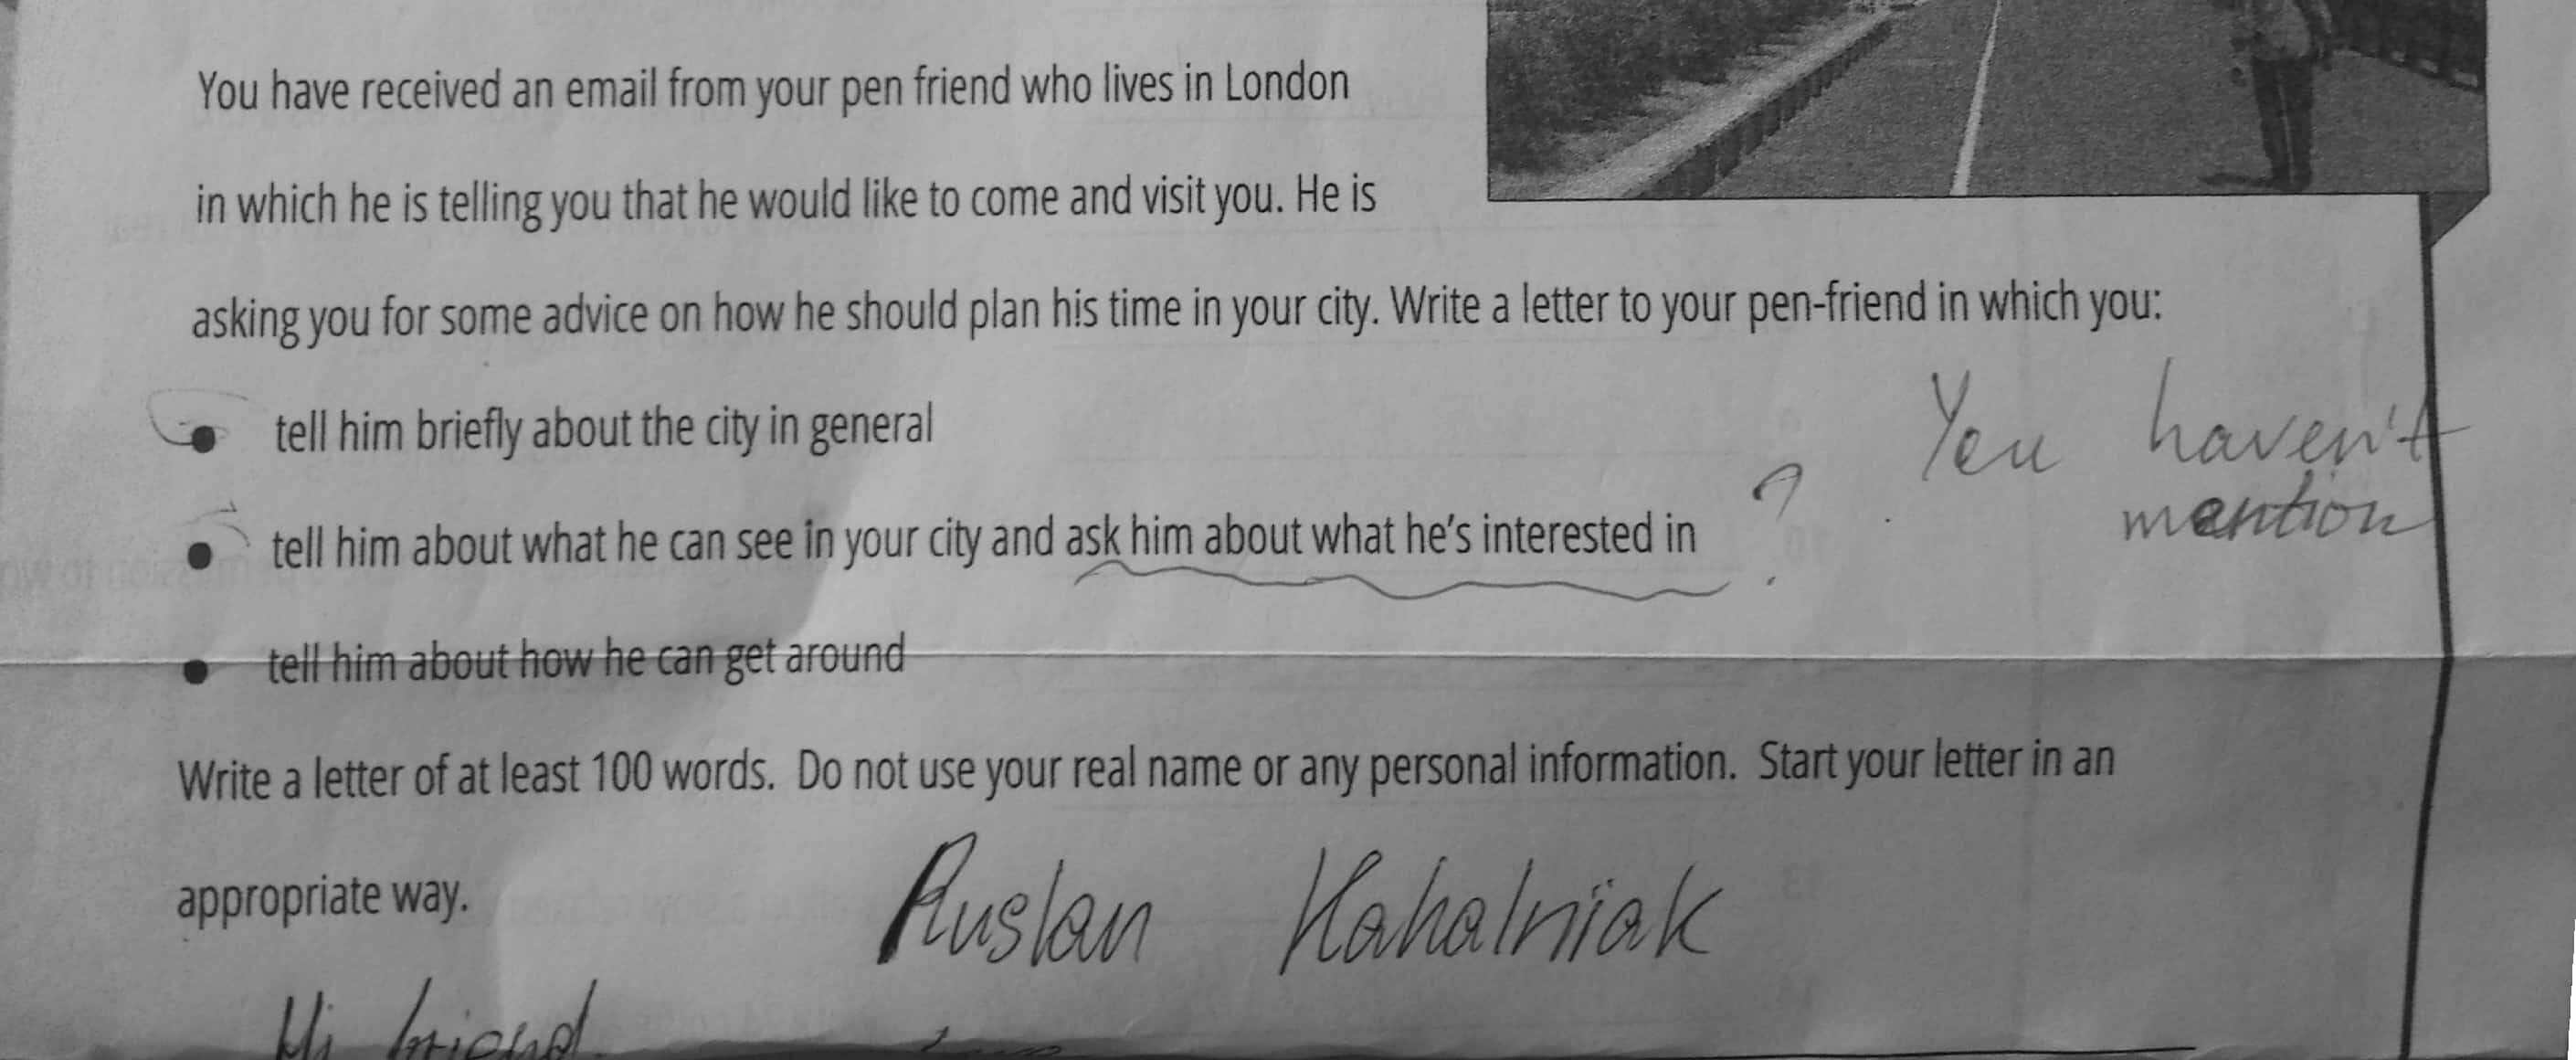 You have received an email from your pen friend who lives in London
in which he is telling you that he would like to come and visit you. He is
asking you for some advice on how he should plan his time in your city. Write a letter to your pen-friend in which you:
• tell him briefly about the city in general
You haven't
mention
• tell him about what he can see in your city and ask him about what he's interested in ?
• tell him about how he can get around
Write a letter of at least 100 words. Do not use your real name or any personal information. Start your letter in an
appropriate way.
Ruslan Kahalniak
Hi friend